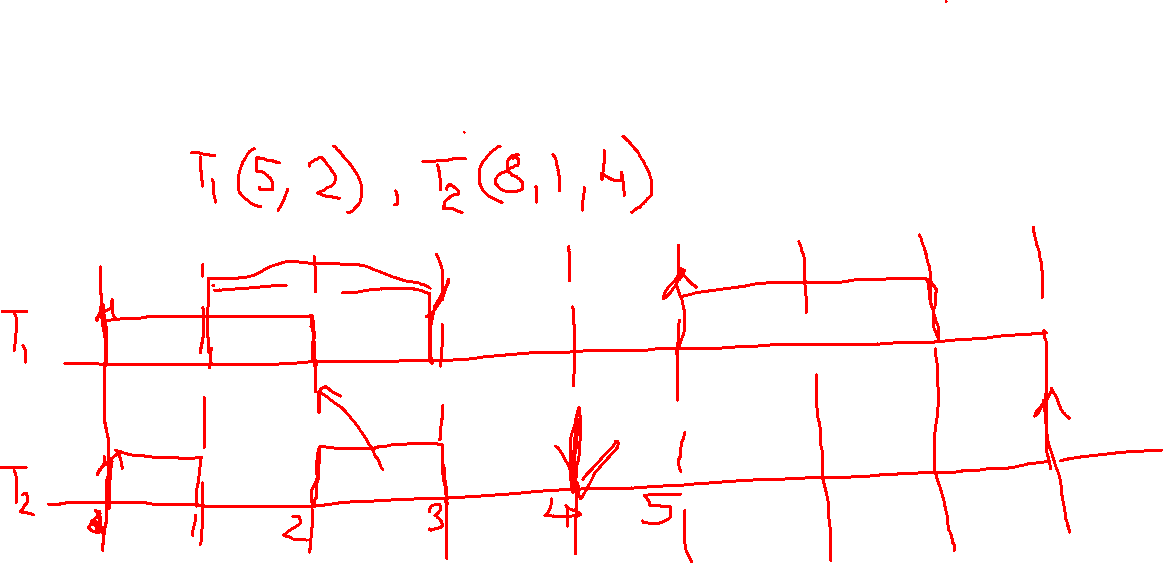 T₁(5, 2), T₂(8, 1, 4)
T₁
T₂
1 2 3 4 5